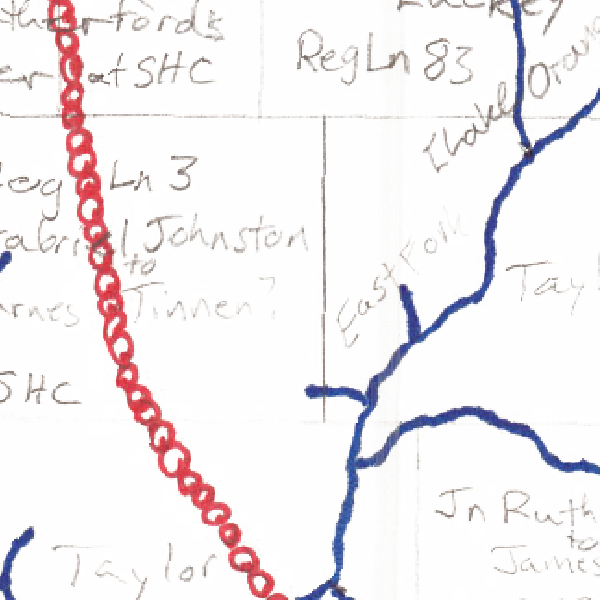 Lackey
therfords
er at SHC
RegLn 83
[Lake Orange
Reg Ln 3
Gabriel Johnston
to
arnes Tinnen?
SHC
East Fork
Tayl
Taylor
Jn Ruth
to
James